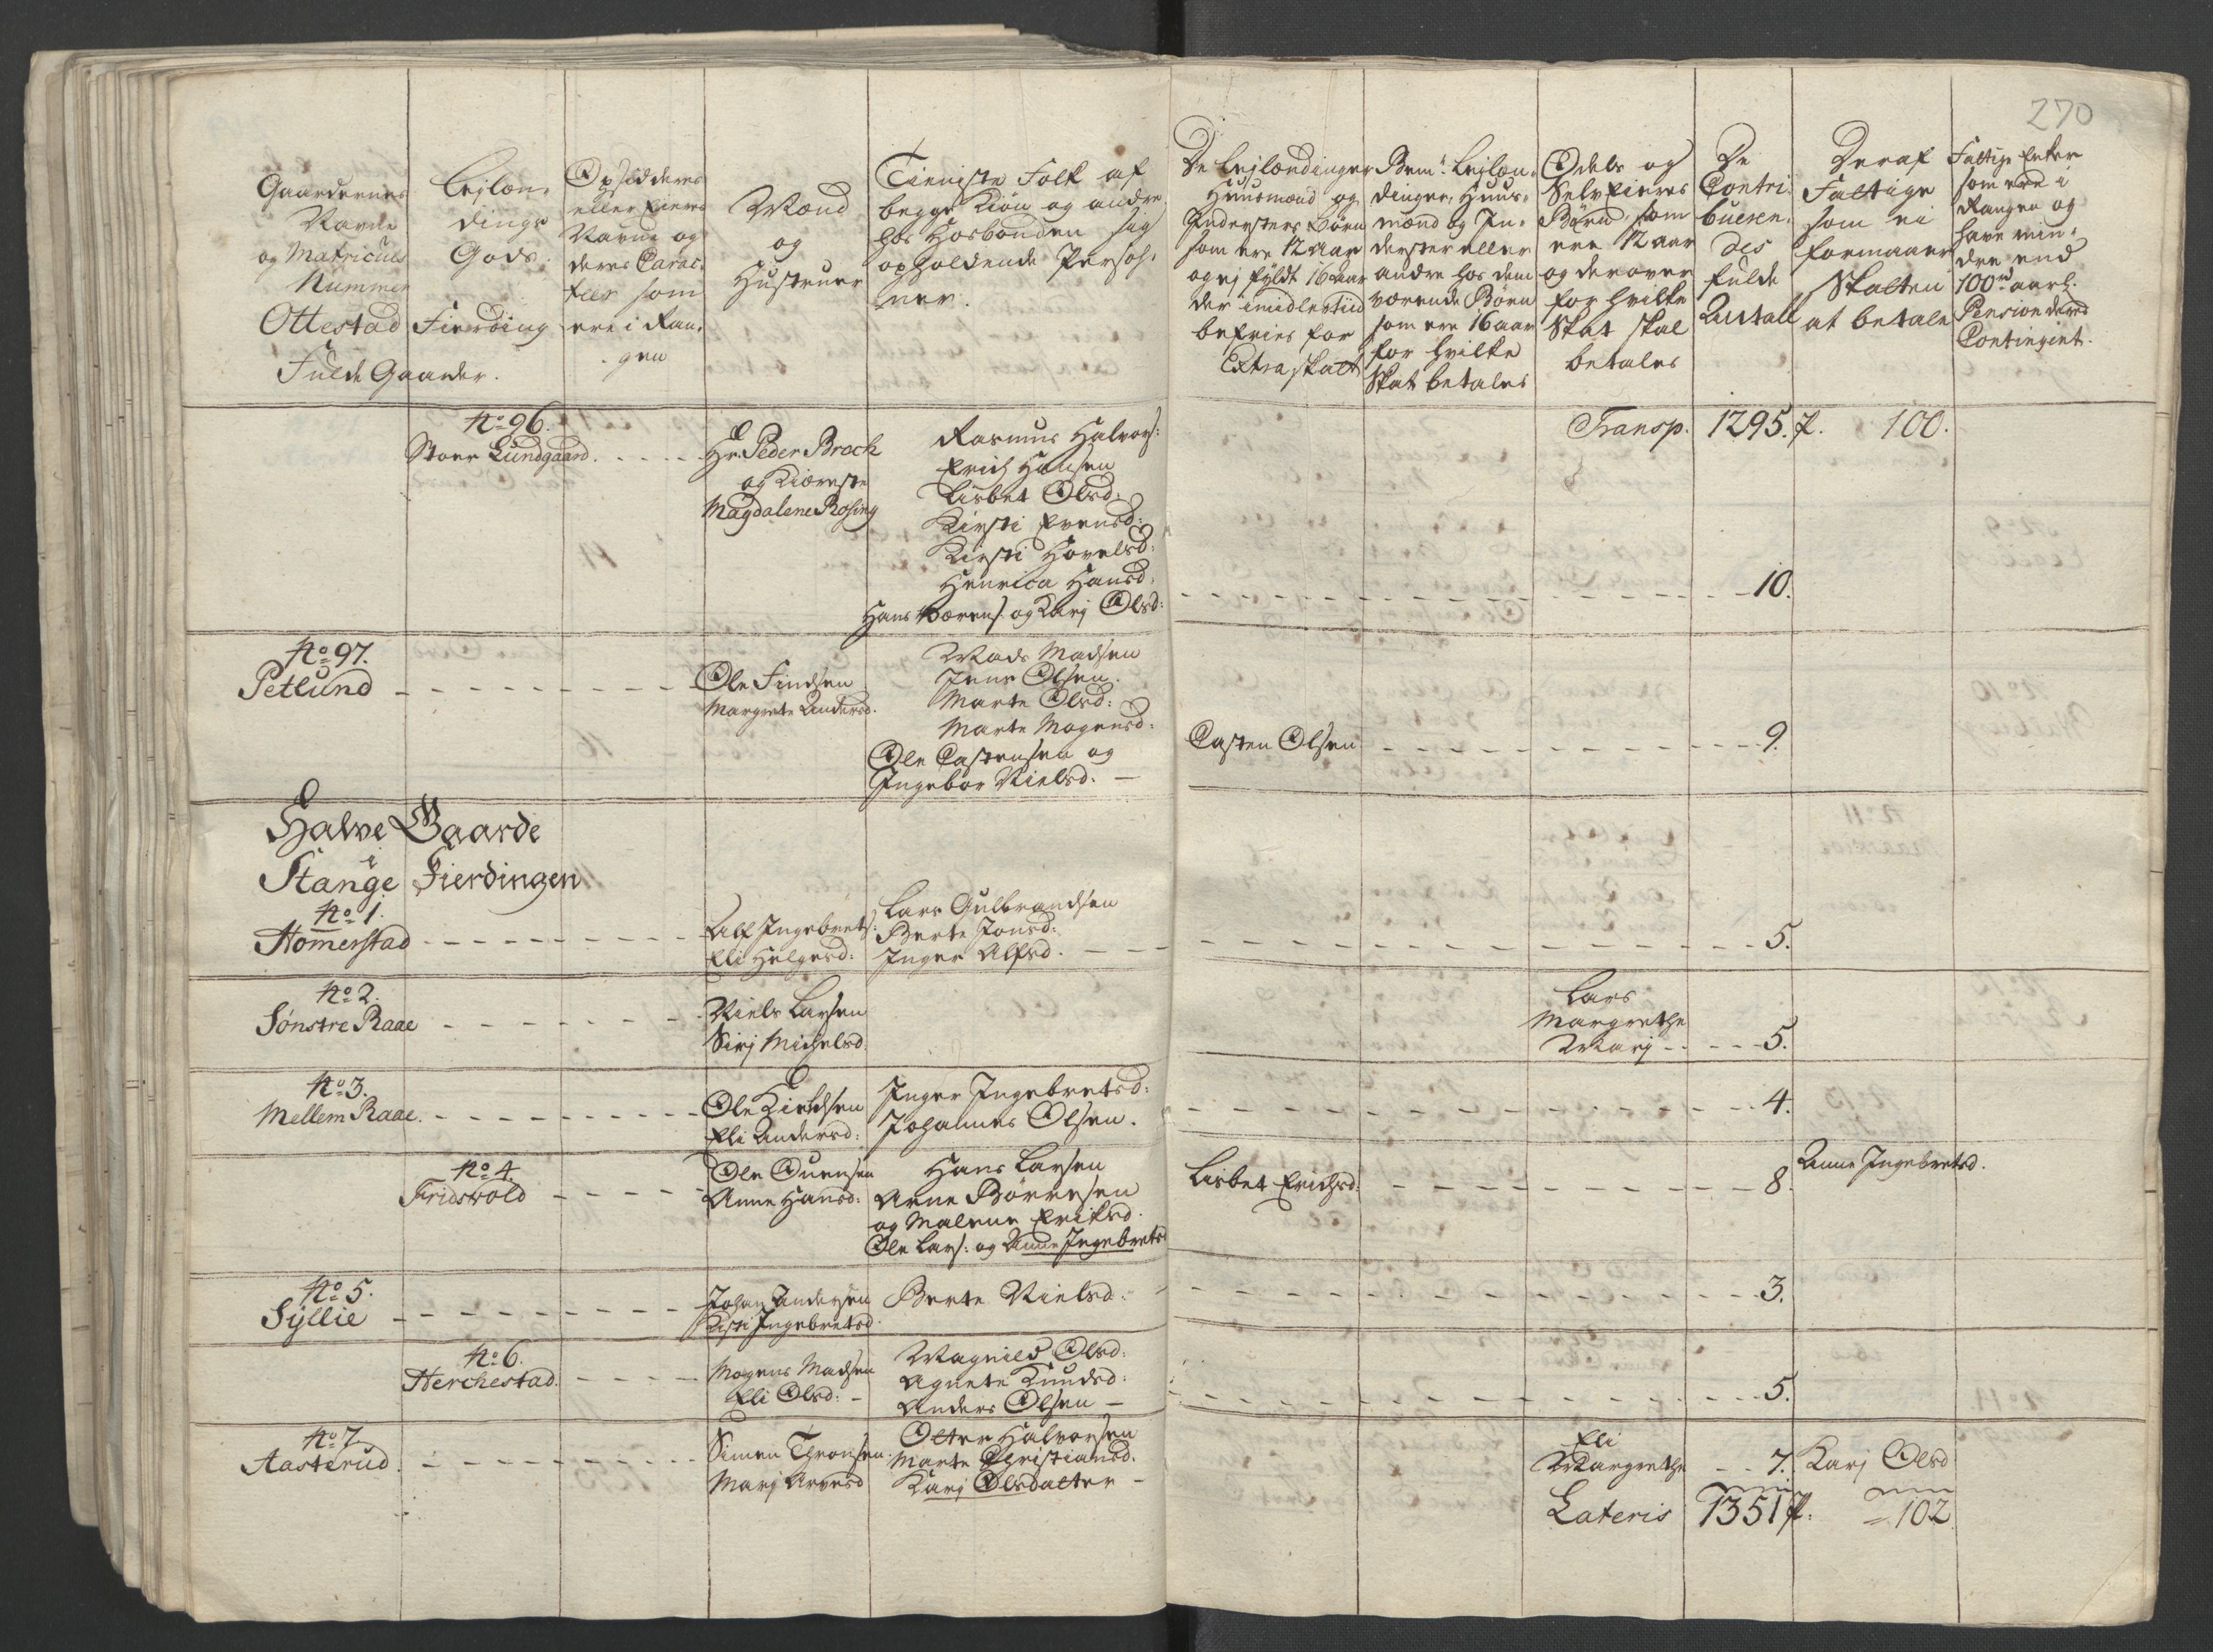 270
Gaardernes
Navne
og Matricul
Nummer
Ottestad
Fulde Gaarder.
Lejlen-
dings
Gods.
Fierding
Opsiddernes
eller Eiernes
Navne og
deres Carac-
teer som
ere i Ran-
gen
Mænd
og
Hustruer
Tieniste Folk af
begge Kiøn og andre
hos Hosbonden sig
opholdende Persoh-
ner.
De Lejlændinger
Huusmænd og
Indersters Børn
som ere 12 Aar
og ej fyldt 16 aar
der imidlertiid
befries for
Extraskatt
Bem.te Lejlæn-
dinger, Huus-
mænd og In-
derster eller
andre hos dem
værende Børn
som ere 16 aar
for hvilke
Skat betales
Odels og
Selv Eieres
Børn, som
ere 12 aar
og derover
for hvilke
Skat skal
betales
De
Contri-
bueren-
des
fulde
Antall
Deraf
Fattige
som ei
formaaer
Skatten
at betale
Fattige Enker
som ere i
Rangen og
have min-
dre end
100 rd aarl.
Pension deres
Contingent.
Transp. 1295. p. 100.
No 96.
Stoer Lundgaard.
Hr. Peder Brock
og Kiereste
Magdalene Rosing
Rasmus Halvors:
Erich Hansen
Lisbet Olsd:
Kirsti Evensd:
Kirsti Hovelsd:
Henrica Hansd:
Hans Børens. og Karj Olsd:
10.
No 97.
Petlund
Ole Findsen
Margrete Andersd.
Mads Madsen
Jens Olsen.
Marte Olsd:
Marte Mogensd:
Ole Castensen og
Ingebor Nielsd.
Casten Olsen
9.
Halve Gaarde
Stange Fierdingen
No 1.
Homerstad
Alf Ingebrets:
Eli Helgesd:
Lars Gulbrandsen
Berte Jonsd:
Inger Alfsd.
5.
No 2.
Sönstre Raae
Niels Larsen
Sirj Michelsd
Lars
Margrethe
Marj
5.
No 3.
Mellem Raae.
Ole Kieldsen
Eli Andersd:
Inger Ingebretsd:
Johannes Olsen.
4.
No 4.
Fridsvold
Ole Evensen
Anne Hansd:
Hans Larsen
Arne Börresen
og Malene Eriksd.
Ole Lars: og Anne Ingebrets
Lisbet Erichsd:
8.
Anne Ingebretsd.
No 5.
Syllie
Johan Andersen
Kisti Ingebretsd
Berte Nielsd.
3.
No 6.
Herchestad.
Mogens Madsen
Eli Olsd:
Magnild Olsd:
Agnete Knudsd:
Anders Olsen
5.
No 7
Aasterud.
Simen Thronsen.
Marj Arnesd
Otter Halvorsen
Marte Christiansd.
Karj Olsdatter
Eli
Margrethe
7.
Karj Olsd
Lateris 1351 p. 102